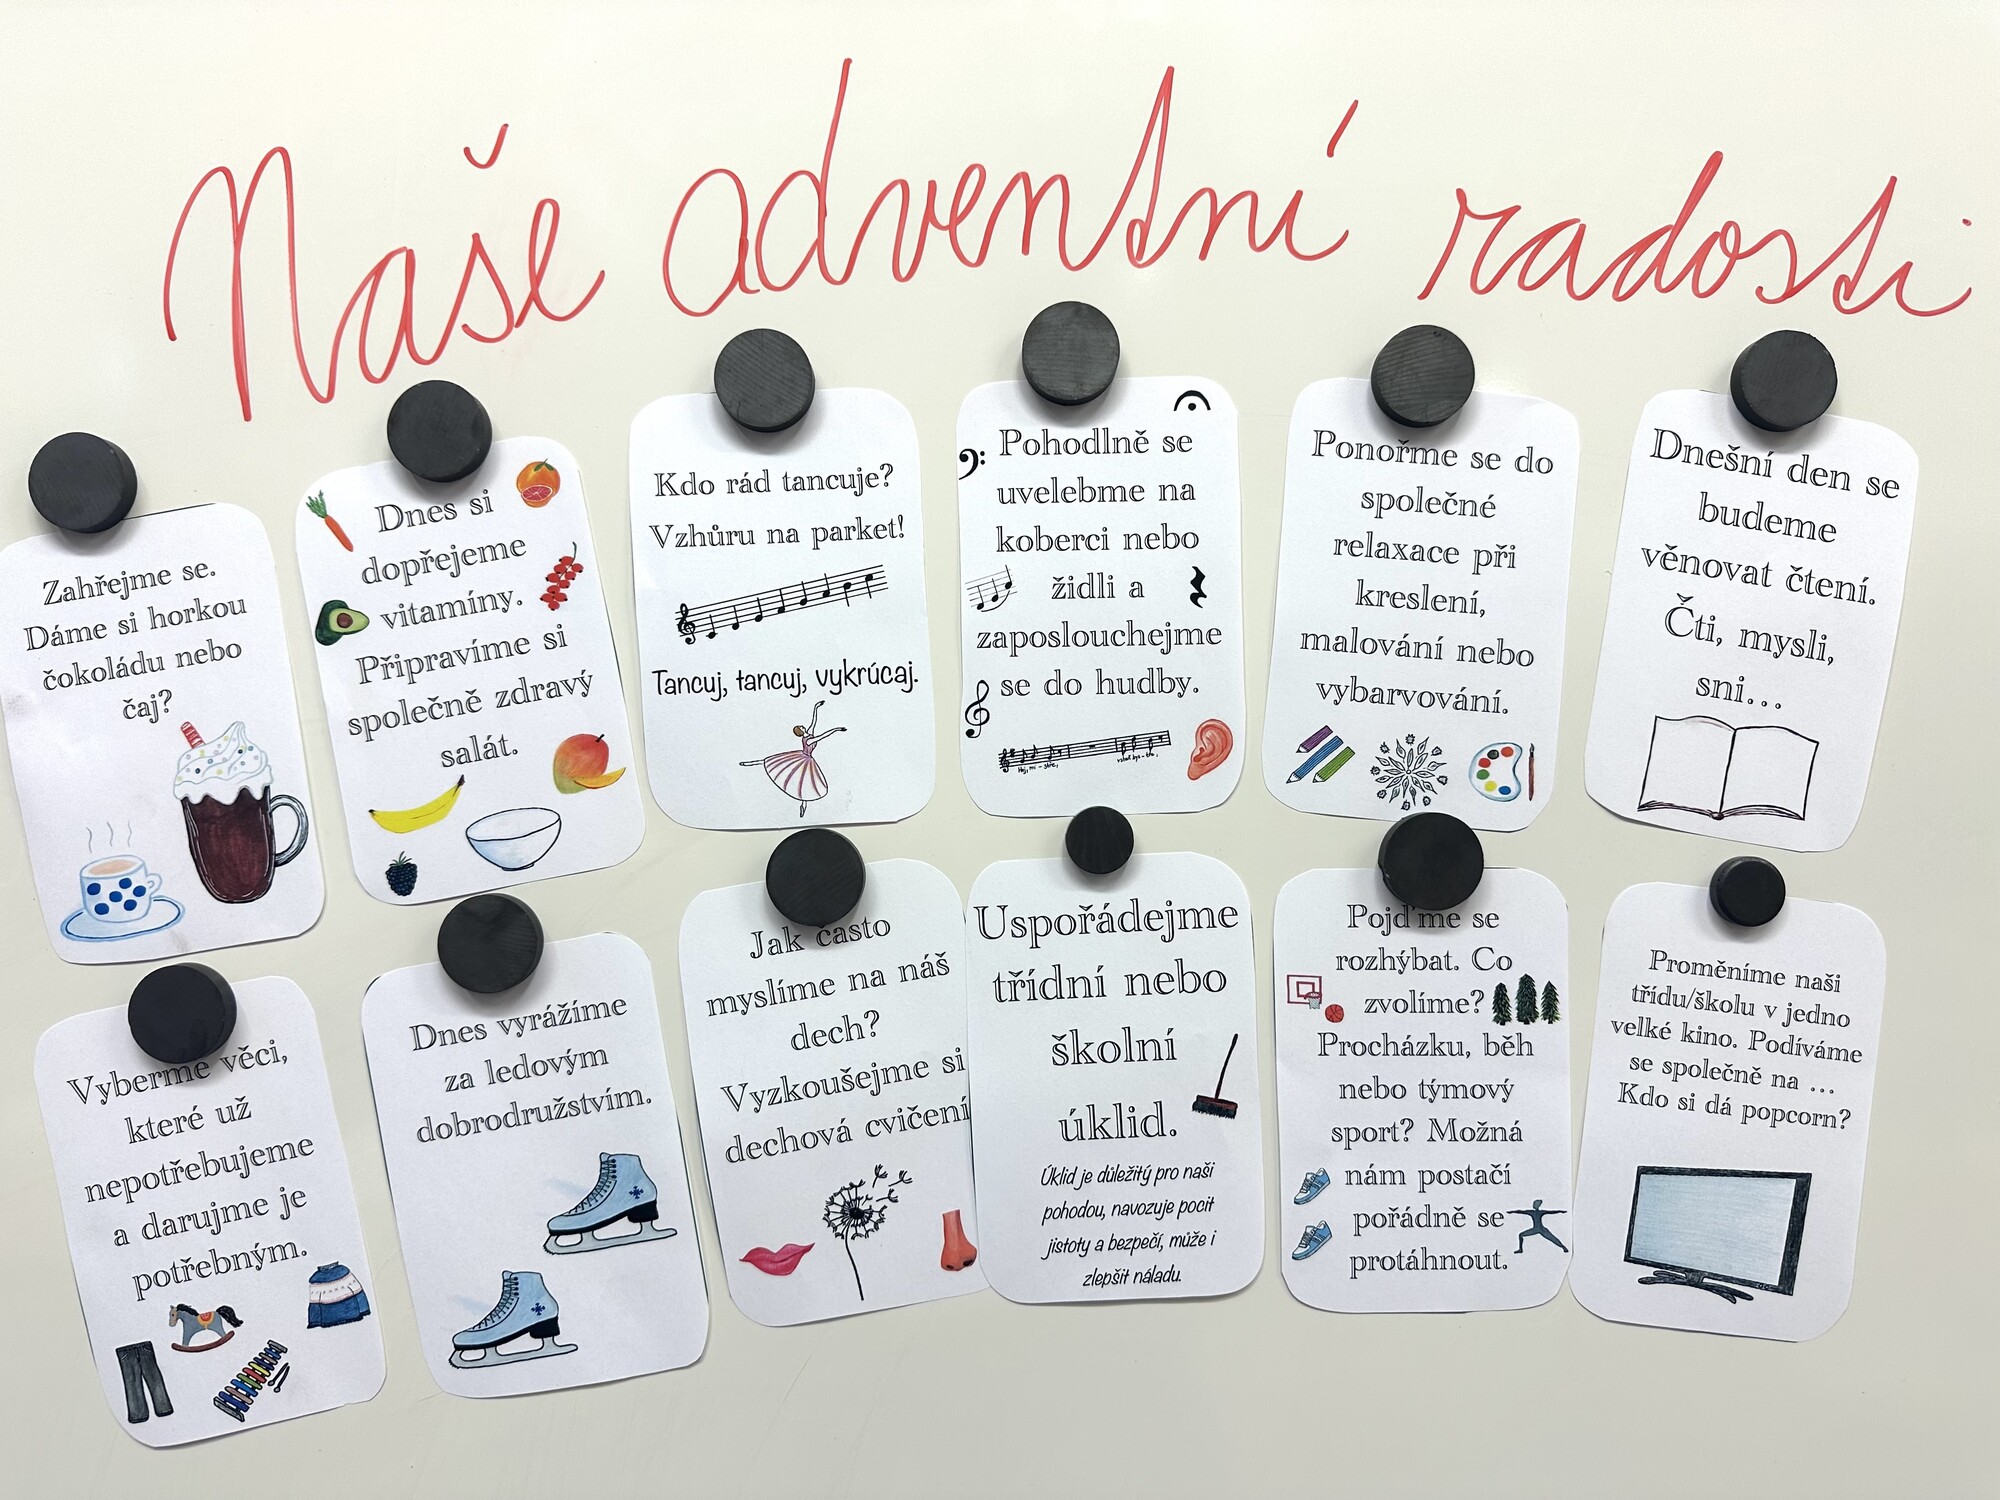 Naše adventní radosti
Zahřejme se.
Dáme si horkou
čokoládu nebo
čaj?
Dnes si
dopřejeme
vitamíny.
Připravíme si
společně zdravý
salát.
Kdo rád tancuje?
Vzhůru na parket!
Tancuj, tancuj, vykrúcaj.
Pohodlně se
uvelebme na
koberci nebo
židli a
zaposlouchejme
se do hudby.
Ponořme se do
společné
relaxace při
kreslení,
malování nebo
vybarvování.
Dnešní den se
budeme
věnovat čtení.
Čti, mysli,
sni...
Vyberme věci,
které už
nepotřebujeme
a darujme je
potřebným.
Dnes vyrážíme
za ledovým
dobrodružstvím.
Jak často
myslíme na náš
dech?
Vyzkoušejme si
dechová cvičení
Uspořádejme
třídní nebo
školní
úklid.
Úklid je důležitý pro naši
pohodou, navozuje pocit
jistoty a bezpečí, může i
zlepšit náladu.
Pojďme se
rozhýbat. Co
zvolíme?
Procházku, běh
nebo týmový
sport? Možná
nám postačí
pořádně se
protáhnout.
Proměníme naši
třídu/školu v jedno
velké kino. Podíváme
se společně na ...
Kdo si dá popcorn?